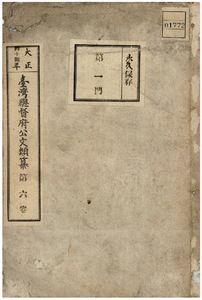 01772
永久保存
第一門
大正
四十四年
臺灣總督府公文類纂 第六卷